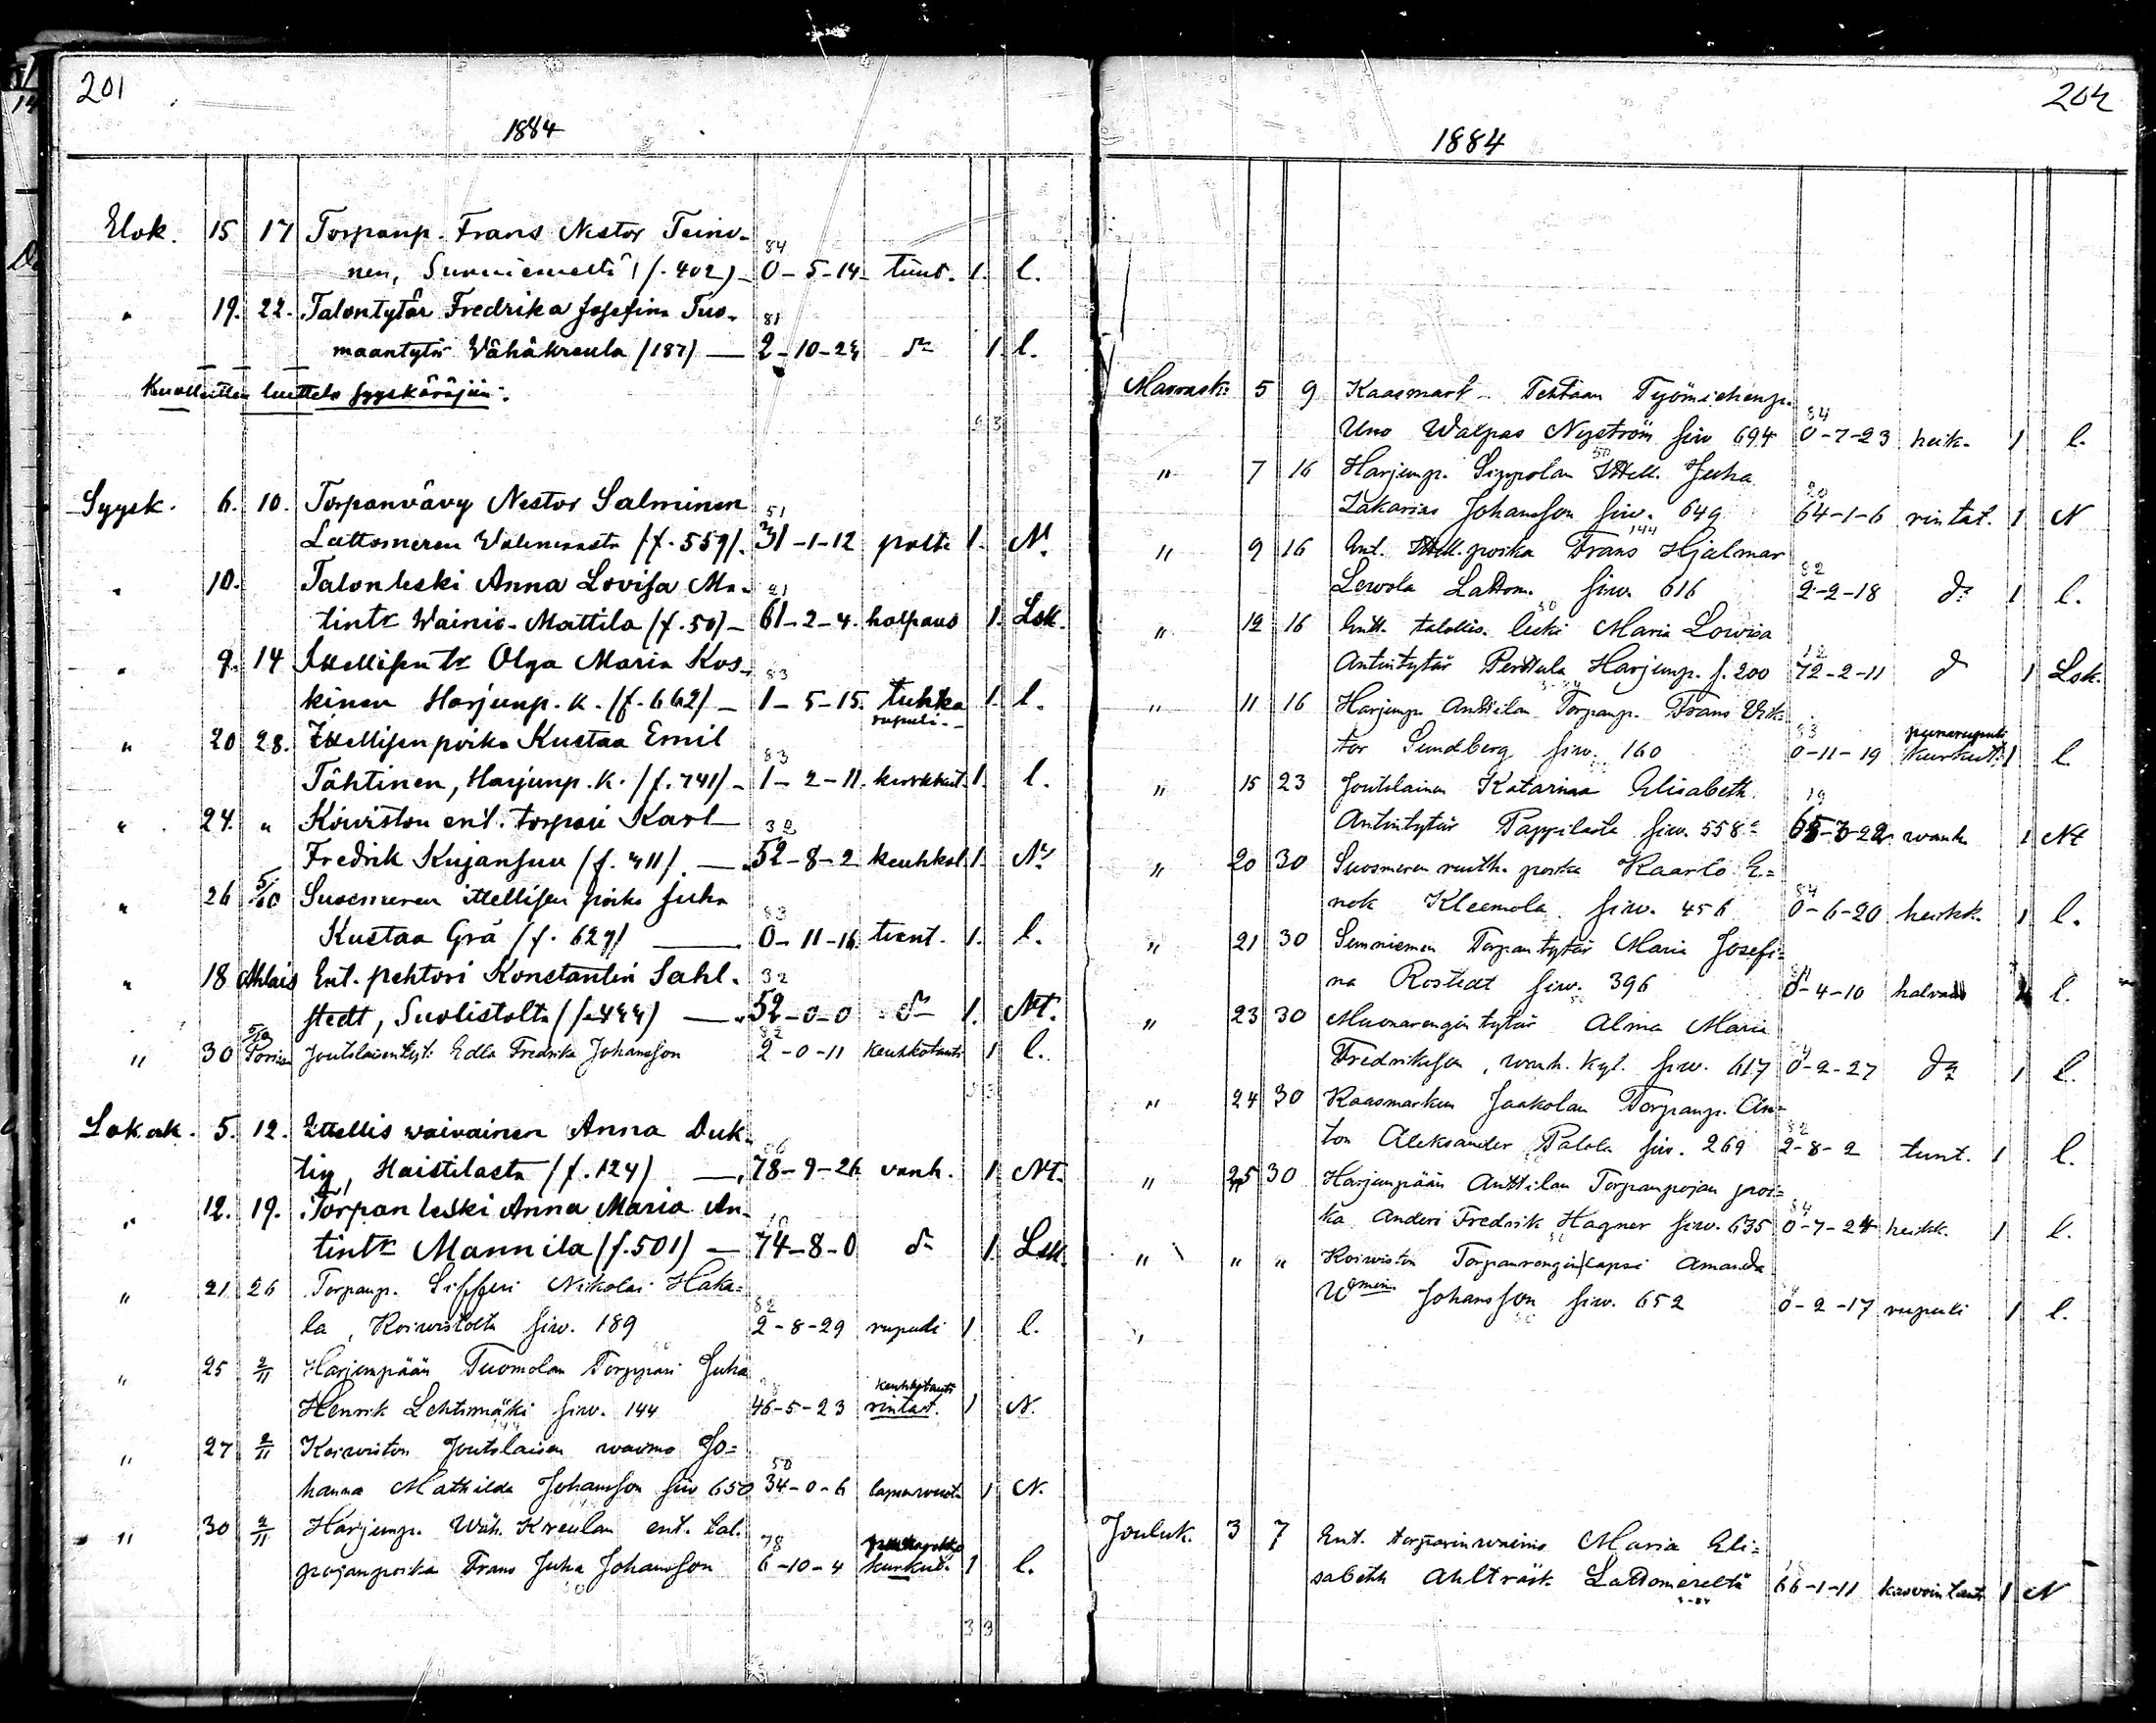 201
1884
Elok. 15 17 Torpanp. Frans Nestor Teino-
nen, Sunniemeltä (f. 402) 84 0-5-14 tunt. 1. l.
" 19. 22. Talontytär Fredrika Josefina Tuo-
maantytär Vähäkreula (187) — 81 2-10-24 d:o 1 l.
Kuolleitten luettelo syyskäräjiin.
Syysk. 6. 10. Torpanvävy Nestor Salminen
Lattomeren (f. 559). 51 31-1-12 poltt. 1. N.
" 10. Talonleski Anna Lovisa Ma-
tintr Wainio-Mattila (f. 50) — 61-2-4. halpaus 1. Lsk.
" 9. 14 Ittellisentr Olga Maria Kos-
kinen Harjunp. k. (f. 662) — 83 1-5-15. tuhka 1. l.
rupuli.
" 20 28. Ittellisenpoika Kustaa Emil
Tähtinen, Harjunp. k. (f. 741) — 83 1-2-11. kurkkut. 1. l.
" 24. " Koiviston ent. torpari Karl
Fredrik Kujansuu (f. 411). — 32 52-8-2 keuhkot. 1. N.
" 26 5/10 Suosmeren ittellisen poika Juha
Kustaa Grå (f. 629) — 83 0-11-16 tunt. 1. l.
" 18 Ahlais Ent. pehtori Konstantin Sahl-
stedt, Suolistolta (f. 444) — 32 52-0-0 d:o 1. Nt.
" 30 5/10 Porissa Joutolaisen tyt. Edla Fredrika Johansson 82 2-0-11 keuhkotauti 1 l.
Lokak. 5. 12. Ittellis vaivainen Anna Duk-
tig, Haistilasta (f. 124) — 06 78-9-26 vanh. 1. Nt.
" 12. 19. Torpan leski Anna Maria An-
tintr Mannila (f. 501) — 10 74-8-0 d:o 1. Lsk.
" 21 26 Torpanp. Sifferi Nikolai Haka-
la, Koivistolta siv. 189 82 2-8-29 rupuli 1 l.
" 25 2/11 Harjunpään Tuomolan Torppari Juha keuhkotauti
Henrik Lehtimäki siv. 144 46-5-23 rintat. 1 N.
" 27 2/11 Koiviston Joutolaisen waimo Jo=
hanna Mathilda Johansson siv 650 50 34-0-6 lapsenvuot. 1 N.
" 30 2/11 Harjunp. Wäh. Kreulan ent. tal.
pojanpoika Frans Juha Johansson 78 6-10-4 kurkut. 1 l.
3 3
202
1884
Marrask. 5 9 Kaasmark. Tehtaan Työmiehenp.
Uno Walpas Nyström siv 694 84 0-7-23 heik. 1 l.
" 7 16 Harjunp. Sippolan Ittell. Juha
Zakarias Johansson siv. 649 20 64-1-6 rintat. 1 N
" 9 16 Ent. Ittell. poika Frans Hjalmar
Lewola Lattom. siv. 616 82 2-2-18 d:o 1 l.
" 12 16 Entt. talollis. leski Maria Lowisa
Antintytär Perttula Harjunp. s. 200 12 72-2-11 d 1 Lsk.
" 11 16 Harjunp. Anttilan Torpanp. Frans Vik=
tor Sundberg siv. 160 83 0-11-19 kurkut. 1 l
" 15 23 Joutolainen Katarina Elisabeth
Antintytär Pappilasta siv. 558 19 65-3-22 wanh. 1 Nt
" 20 30 Suosmeren ruoth. poika Kaarlo E=
nok Kleemola. siv. 456 84 0-6-20 heikk. 1 l.
" 21 30 Sunniemen Torpan tytär Maria Josefi=
na Rostedt siv. 396 0-4-10 halvaus l.
" 23 30 Muonarengin tytär Alma Maria
Fredriksson, wanh. kyl. siv. 617 0-2-27 d:o 1 l.
" 24 30 Kaasmarkun Jaakolan Torpanp. An=
ton Aleksander Palola siv. 269 82 2-8-2 tunt. 1 l.
" 25 30 Harjunpään Anttilan Torpanpojan poi=
ka Anderi Fredrik Hagner siv. 635 84 0-7-24 heikk. 1 l.
" " " Koiviston Torpanrengin lapsi Amanda
Johansson siv. 652 0-2-17 rupuli 1 l.
"
Jouluk. 3 7 Ent. torparinwaimo Maria Eli=
sabeth Ahlträsk Lattomereltä 66-1-11 1 N